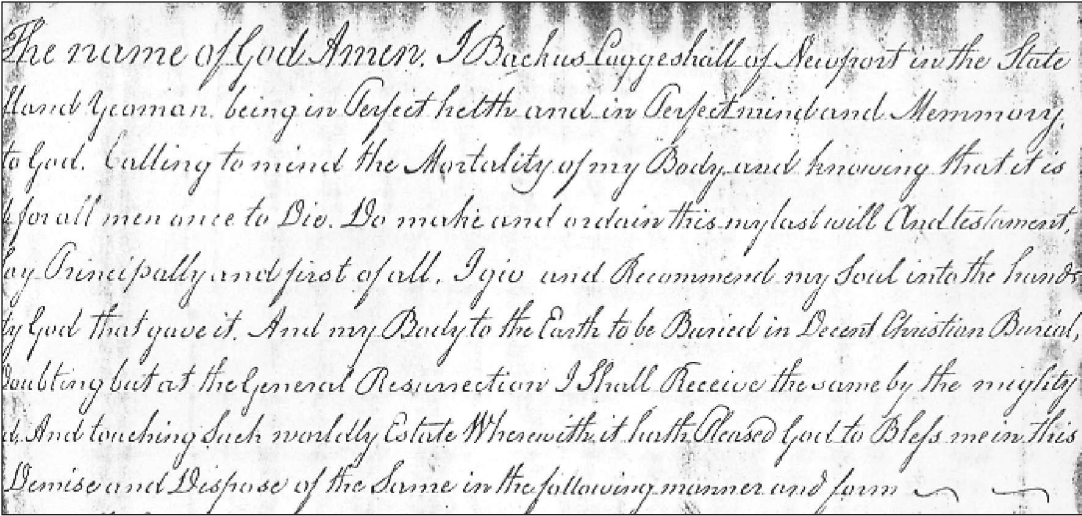 The name of God Amen. I Backus Coggeshall of Newport in the State
and Yeoman. being in Perfect helth and in Perfect mind and Memmory.
to God. Calling to mind the Mortality of my Body and knowing that it is
for all men once to Die. Do make and ordain this my last will And testament,
ay Principally and first of all, I giv and Recommend my Soul into the hands
ty God that gave it. And my Body to the Earth to be Buried in Decent Christian Burial,
doubting but at the General Resurrection I Shall Receive the same by the mighty
d, And touching Such worldly Estate Wherewith it hath Pleased God to Bless me in this
Demise and Dispose of the Same in the following manner and form